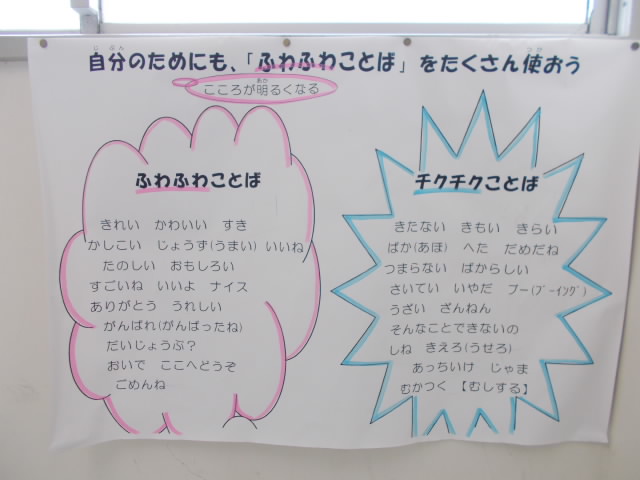 自分のためにも、「ふわふわことば」をたくさん使おう
こころが明るくなる
ふわふわことば
きれい かわいい すき
かしこい じょうず(うまい) いいね
たのしい おもしろい
すごいね いいよ ナイス
ありがとう うれしい
がんばれ(がんばったね)
だいじょうぶ?
おいで ここへどうぞ
ごめんね
チクチクことば
きたない きもい きらい
ばか(あほ) へた だめだね
つまらない ばからしい
さいてい いやだ ブー(ブーイング)
うざい ざんねん
そんなことできないの
しね きえろ(うせろ)
あっちいけ じゃま
むかつく 【むしする】